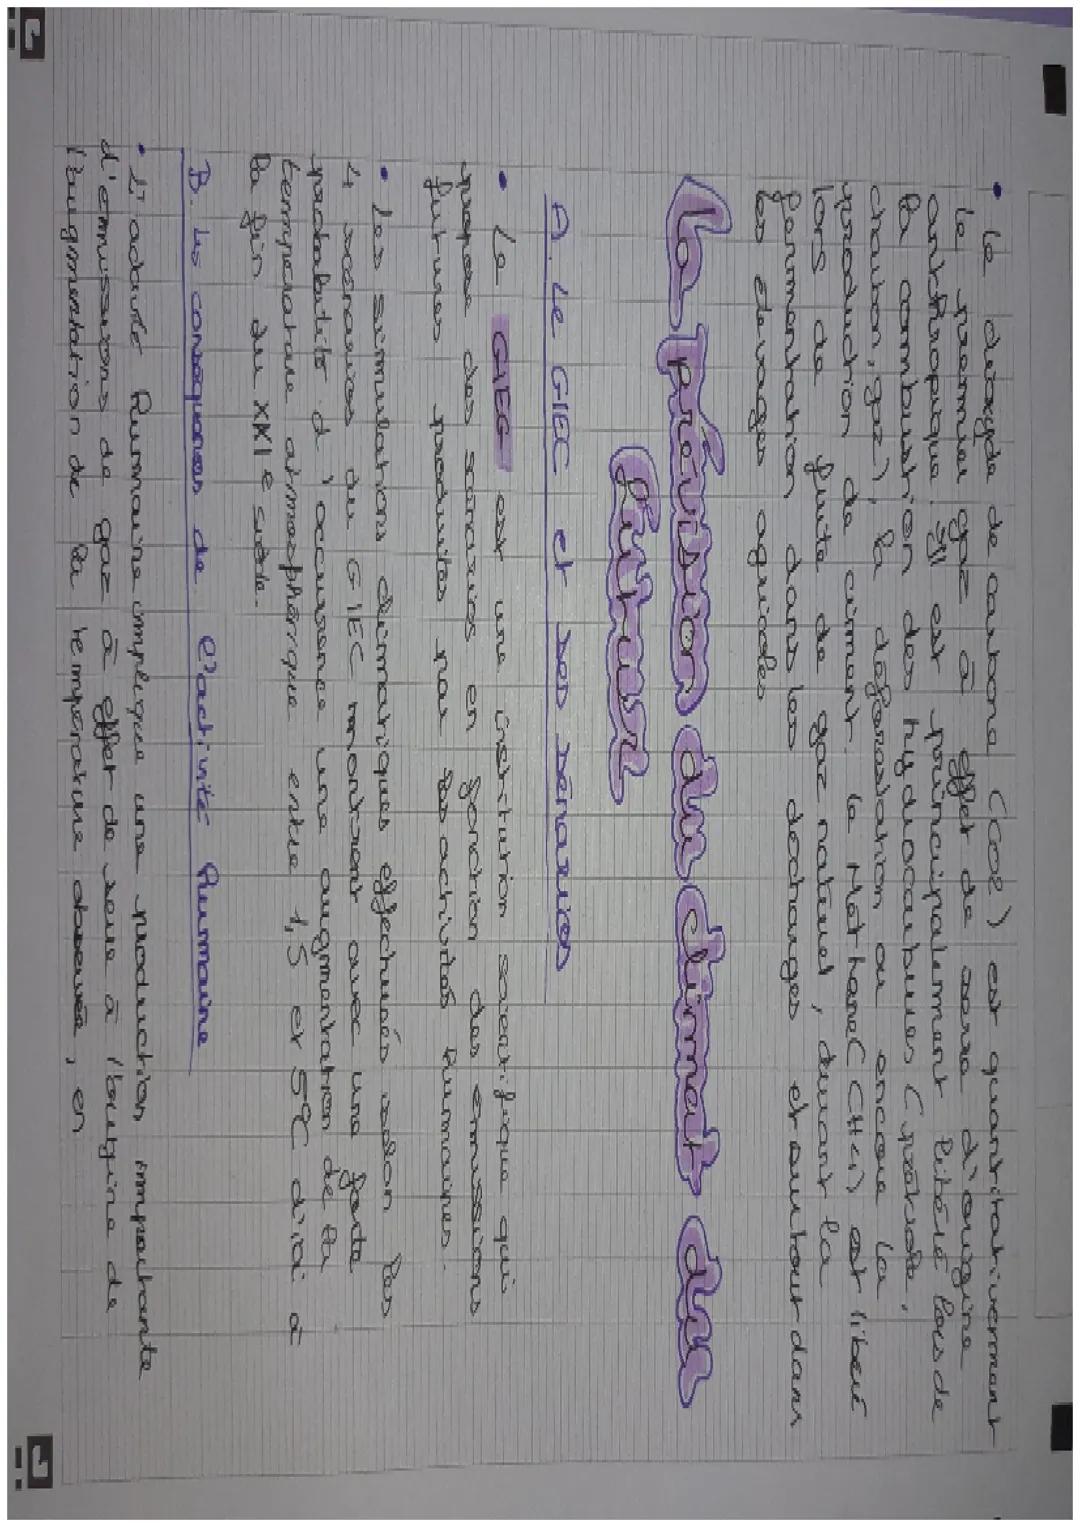 • Le dioxyde de carbone (CO2) est quantitativement
le premier gaz à effet de serre d'origine
anthropique. Il est principalement libéré lors de
la combustion des hydrocarbures (pétrole,
charbon, gaz), la déforestation ou encore la
production de ciment. Le Méthane (CH4) est libéré
lors de fuite de gaz naturel, durant la
fermentation dans les décharges et surtout dans
les élevages agricoles
La prévision du climat du
futur
A. Le GIEC et ses scénarios
• Le GIEC est une institution scientifique qui
propose des scénarios en fonction des émissions
futures produites par les activités humaines.
• Les simulations climatiques effectuées selon les
4 scénarios du GIEC montrent avec une forte
probabilité d'occurrence une augmentation de la
température atmosphérique entre 1,5 et 5°C d'ici à
la fin du XXIe siècle.
B. Les conséquences de l'activité humaine
• L'activité humaine implique une production importante
d'émissions de gaz à effet de serre à l'origine de
l'augmentation de la température observée, en